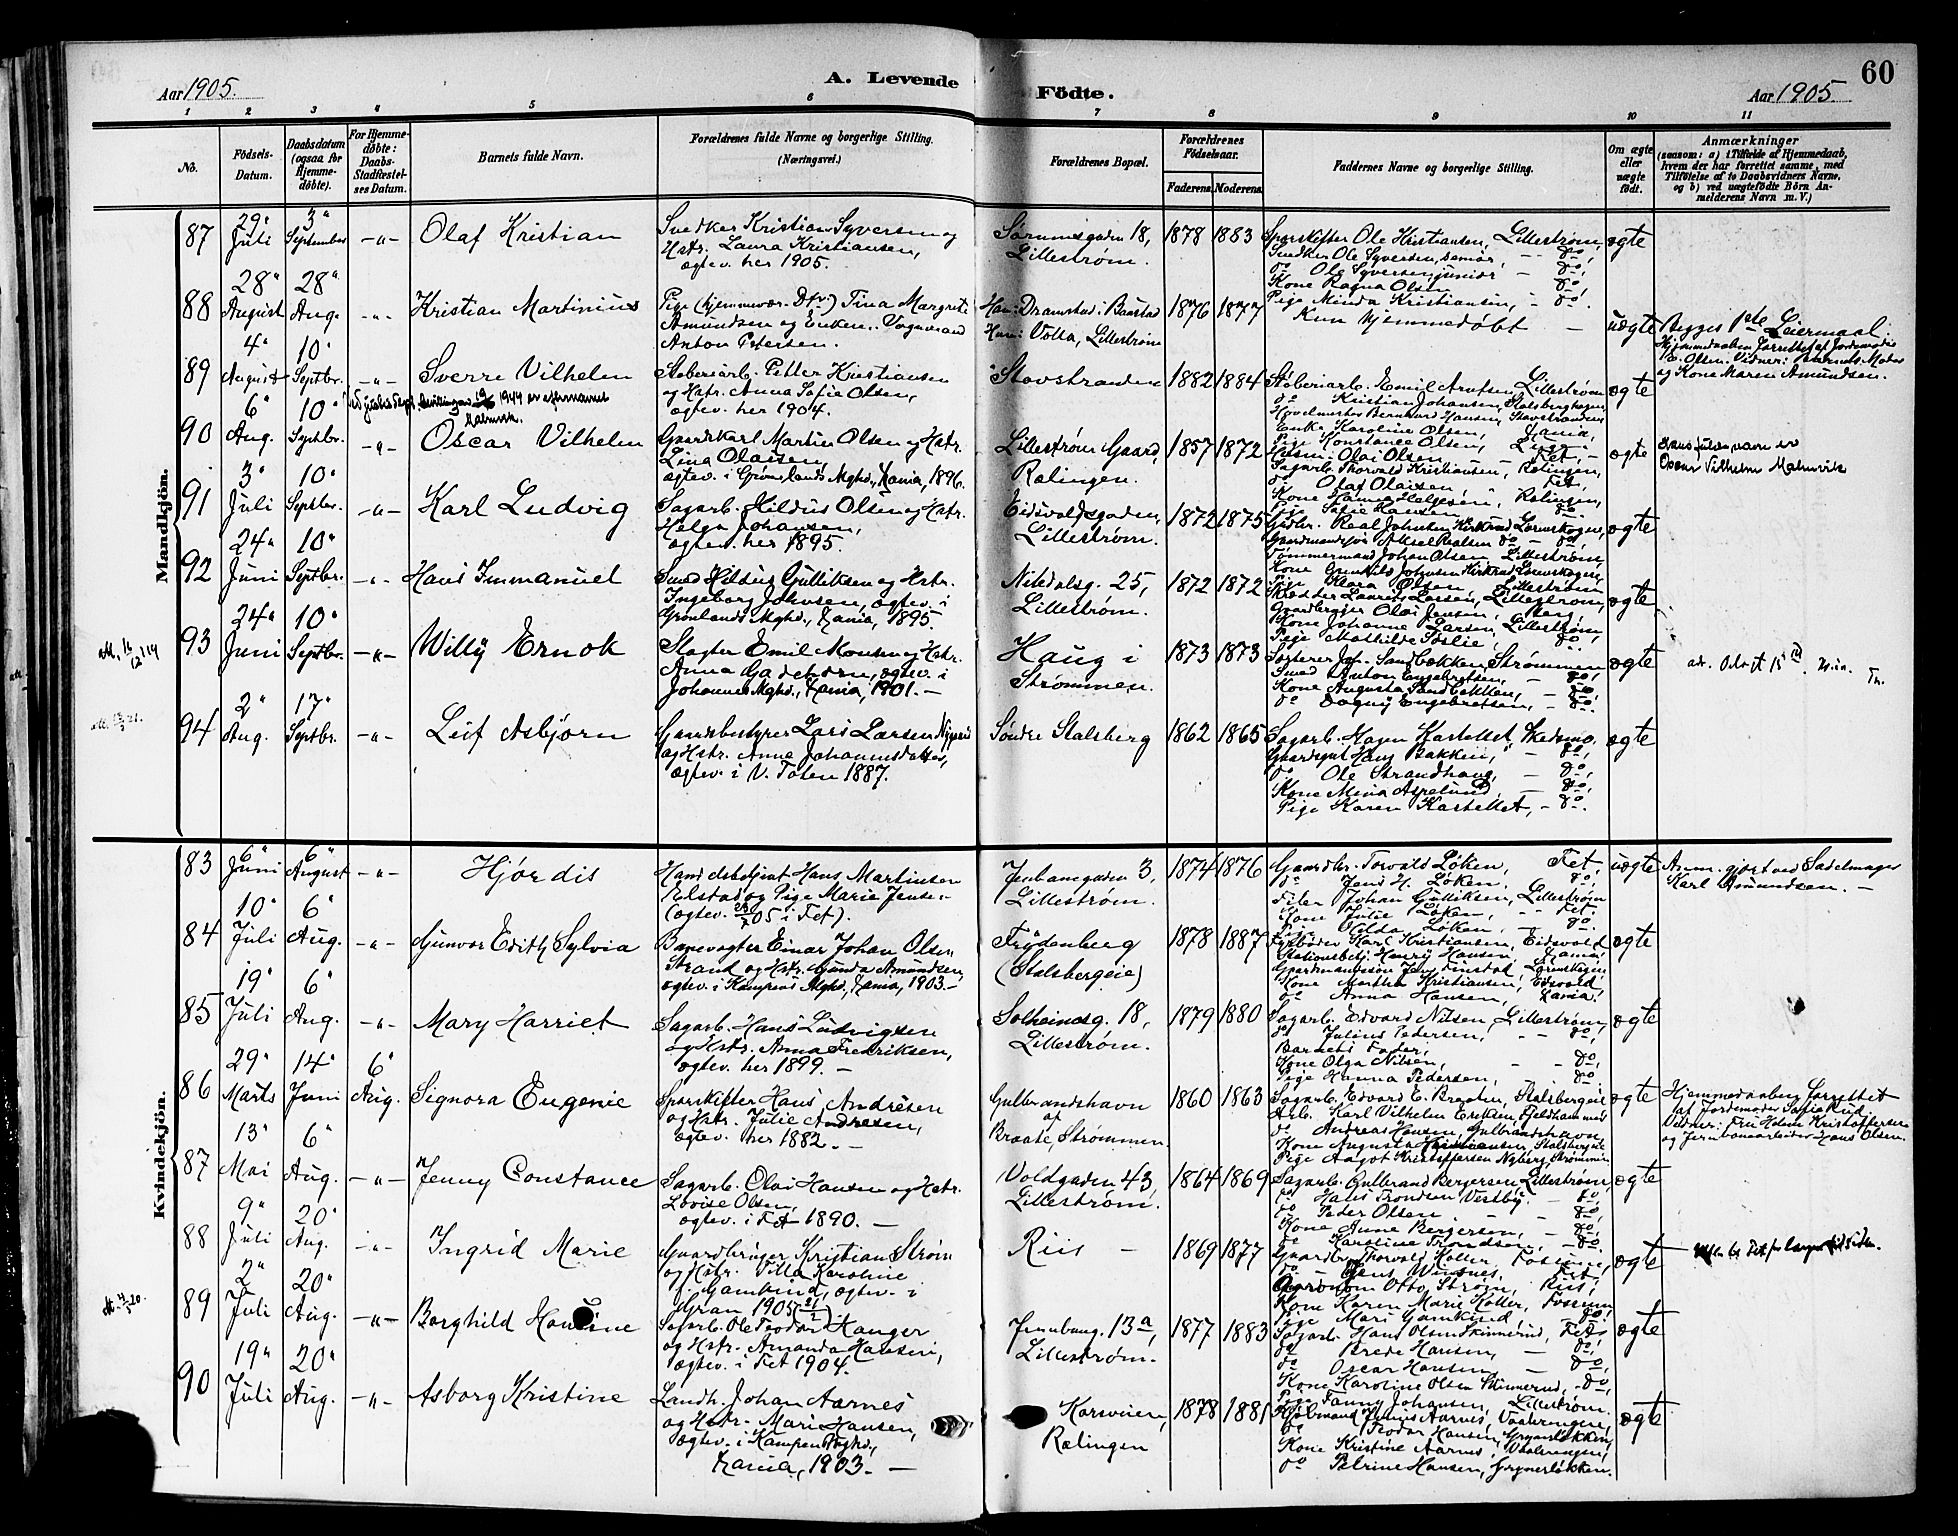 60
Aar 1905.
A. Levende Födte.
Aar 1905
1 2 3 4 5 6 7 8 9 10 11
No.
Födsels-Datum.
Daabsdatum (ogsaa for Hjemme-døbte).
For Hjemme-døbte: Daabs-Stadfæstel-ses Datum.
Barnets fulde Navn.
Forældrenes fulde Navne og borgerlige Stilling.
(Næringsvei.)
Forældrenes Bopæl.
Forældrenes Födselsaar.
Faderens. Moderens.
Faddernes Navne og borgerlige Stilling.
Om ægte eller uægte födt.
Anmærkninger
(saasom: a) i Tilfælde af Hjemmedaab,
hvem der har forrettet samme, med
Tilföielse af to Daabsvidners Navne,
og b) ved uægtefödte Börn An-
melderens Navn m. V.)
Mandkjön.
87 29 Juli 3 September -"- Olaf Kristian
Snedker Kristian Syversen og
Hstr. Laura Kristiansen,
ægtev. her 1905.
18, Lillestrøm.
1878 1883
Sporskifter Ole Kristiansen, Lillestrøm,
Snedker Ole Syversen, senior, - do,
do Ole Syversen junior - do,
Kone Ragna Olsen do,
Pige Minda Kristiansen, - do.
ægte
88 28 August 28 Aug. -"- Kristian Martinius
Pige Tina Margrete
Amundsen og Enkem.
Anton Petersen.
Han: Dramstad i Baastad
Hun: Volla, Lillestrøm
1876 1877
Kun hjemmedøbt -
uægte
Begges 1ste Leiermaal.
Hjemmedaaben forrettet af Jordemoder
Olsen. Vidner: Barnets Moder
og Kone Maren Amundsen.
89 4 August 10 Septbr. -"- Sverre Vilhelm
Støberiarb. Petter Kristiansen
og Hstr. Anna Sofie Olsen,
ægtev. her 1904.
Stavstranden
1882 1884
Støberiarb. Emil Lillestrøm
do Kristian Johansen, Stalsberghagen
Bernhard Hansen, Stavstranden
Enke Karoline Olsen, Xania,
Pige Konstance Olsen,
ægte
1944
Malmvik.
90 6 Aug. 10 Septbr. -"- Oscar Vilhelm
Gaardskarl Martin Olsen og Hstr.
Lina Olaisen,
ægtev. i Grønlands Mghd., Xania, 1896.
Lillestrøm Gaard,
Rælingen.
1857 1872
Olai Olsen, Fet,
Sagarb. Thorvald Kristiansen, Rælingen,
do Olaf Olaisen Fet,
Kone Hanna Helgesen, Rælingen,
Pige Sofie Hansen do.
ægte
Hans fulde navn er
Oscar Vilhelm Malmvik
91 3 Juli 10 Septbr. -"- Karl Ludvig
Sagarb. Hildus Olsen og Hstr.
Helga Johansen,
ægtev. her 1895.
Eidsvoldsgaden,
Lillestrøm.
1872 1875
Gaardmandssøn Aksel do - do,
Tømmermand Johan Olsen Lillestrøm,
Pige Klara Olsen, Lillestrøm
ægte
92 24 Juni 10 Septbr. -"- Hans Immanuel
Smed Hildus Gulliksen og Hstr.
Ingeborg Johnsen, ægtev. i
Grønlands Mghd., Xania, 1895.
Nitedalsg. 25,
Lillestrøm.
1872 1872
Skrædder Laurits Larsen, Lillestrøm,
Gaardbruger Olai Jensen,
Kone Johanne Larsen, Lillestrøm,
Pige Mathilde do.
ægte
93 24 Juni 10 Septbr. -"- Willy Ernok
Slagter Emil Monsen og Hstr.
Anna ægtev. i
Johannes Mghd., Xania, 1901. -
Haug i
Strømmen.
1873 1873
Sandbækken, Strømmen
Smed Anton Engebretsen, - do,
Kone Augusta Sandbækken, - do,
do Dagny Engebretsen, - do.
ægte
94 2 Aug. 17 Septbr. -"- Leif Asbjørn
Gaardsbestyrer Lars Larsen Nygaard
og Hstr. Anne Johannesdatter,
ægtev. i V. Toten 1887.
Søndre Stalsberg
1862 1865
Sagarb. Hagen Kastellet, Skedsmo.
Hans Bakken, - do,
do Ole Strandhaug, - do,
Kone Mina Aspelund - do,
Pige Karen Kastellet, - do.
ægte
Kvindekjön.
83 6 Juni 6 August -"- Hjørdis
Handelsbetjent Hans Martinsen
Elstad og Pige Marie Jensen
(ægtev. 05 i Fet).
Jernbanegaden 3,
Lillestrøm.
1874 1876
Gaardbr. Torvald Løken, Fet,
do Jens H. Løken, do,
Filer Johan Gulliksen, Lillestrøm
Kone Julie Løken, - Fet.
Pige Hilda Løken, - do.
uægte
Anm. gjort ved Sadelmager
Karl Amundsen. -
84 10 Juli 6 Aug. -"- Gunvor Edith Sylvia
Banevogter Einar Johan Olsen
Strand og Hstr. Gunda Amundsen,
ægtev. i Kampens Mghd., Xania, 1903. -
Frydenberg
(Stalsbergeie)
1878 1887
Fyrbøder Karl Kristiansen, Eidsvold,
Stationsbetj. Henry Hansen, Xania,
Kone Martha Kristiansen, Eidsvold,
do Anna Hansen, Xania.
ægte
85 19 Juli 6 Aug. -"- Mary Harriet
Sagarb. Hans Ludvigsen
og Hstr. Anna Fredriksen,
ægtev. her 1899. -
Solheimsg. 18,
Lillestrøm.
1879 1880
Sagarb. Edvard Nilsen, Lillestrøm,
do Julius Pedersen, - do,
Barnets Fader,
Kone Olga Nilsen, - do,
Pige Hanna Pedersen, do.
ægte
86 29 Marts 14 Juni 6 Aug. Signora Eugenie
Sporskifter Hans Andresen
og Hstr. Julie Andresen,
ægtev. her 1882. -
Gulbrandshavn
af
Braate, Strømmen.
1860 1863
Sagarb. Edvard E. Braathen, Stalsbergeie
Arb. Karl Vilhelm Eriksen, Fjeldhammer
do Andreas Hansen, Gulbrandshavn,
Kone Augusta Kristiansen, Stalsbergeie
Pige Aagot Kristoffersen Nyberg, Strømmen
ægte
Hjemmedaaben forrettet
af Jordemoder Sofie Rud.
Vidner: Fru Helene Kristoffersen
og Jernbanearbeider Hans Olsen.
87 13 Mai 6 Aug. -"- Jenny Constance
Sagarb. Olai Hansen og Hstr.
Lovise Olsen,
ægtev. i Fet 1890. -
Voldgaden 43,
Lillestrøm.
1864 1869
Sagarb. Gulbrand Bergersen Lillestrøm,
do Hans Trondsen Vestby, - do,
do Peder Olsen - do,
Kone Anne Bergersen, - do,
do Karoline Trondsen, - do.
ægte
88 9 Juli 20 Aug. -"- Ingrid Marie
Gaardbruger Kristian Strøm
og Hstr. Tilla Karoline
Gamkind, ægtev. i
Gran 1905
Riis -
1869 1877
Gaardbr. Thorvald Koller, Fossum,
do Jens Winsnes, Fet,
Agronom Otto Strøm, Riis,
Kone Karen Marie Koller, Fossum,
Pige Mari Gamkind do.
ægte
89 2 Juli 20 Aug. -"- Borghild
Sagarb. Ole Teodor Hanger
og Hstr. Amanda Hansen,
ægtev. i Fet 1904.
Jernbaneg. 13a,
Lillestrøm.
1877 1883
Sagarb. Hans Olsen Skinnerud, Fet,
do Brede Hansen, - do,
do Oscar Hansen - do,
Kone Karoline Olsen Skinnerud, - do,
Pige Fanny Johansen, Lillestrøm.
ægte
90 19 Juli 20 Aug. -"- Asborg Kristine
Landh. Johan Aarnes
og Hstr. Mari Hansen,
ægtev. i Kampen Mghd.,
Xania, 1903. -
Korsveien,
Rælingen
1878 1881
Julius Aarnes, Vaalerengen,
do Teodor Hansen, Grynerløkken,
Kone Kristine Aarnes, Vaalerengen,
do Petrine Hansen, Grynerløkken.
ægte